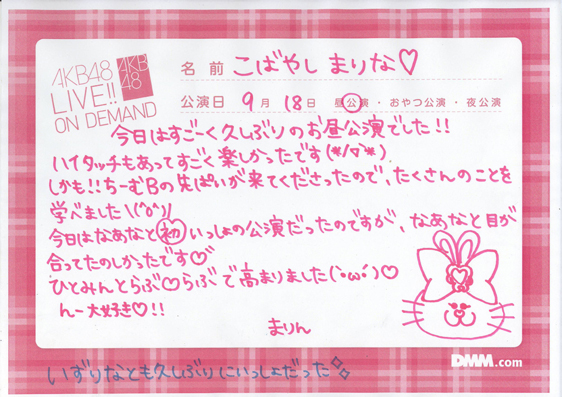 AKB48
LIVE!!
ON DEMAND
AKB
48
名前 こばやし まりな♡
公演日 9月 18日 昼公演・おやつ公演・夜公演
今日はすごーく久しぶりのお昼公演でした!!
ハイタッチもあってすごく楽しかったです(*/▽`*)
しかも!!ちーむBの先ぱいが来てくださったので、たくさんのことを
学べました\(^o^)/
今日はなあなと初いっしょの公演だったのですが、なあなと目が
合ってたのしかったです♡
ひとみんとらぶ♡らぶで高まりました(`・ω・´)♡
んー大好き♡!!
まりん
DMM.com
いずりなとも久しぶりにいっしょだった✧